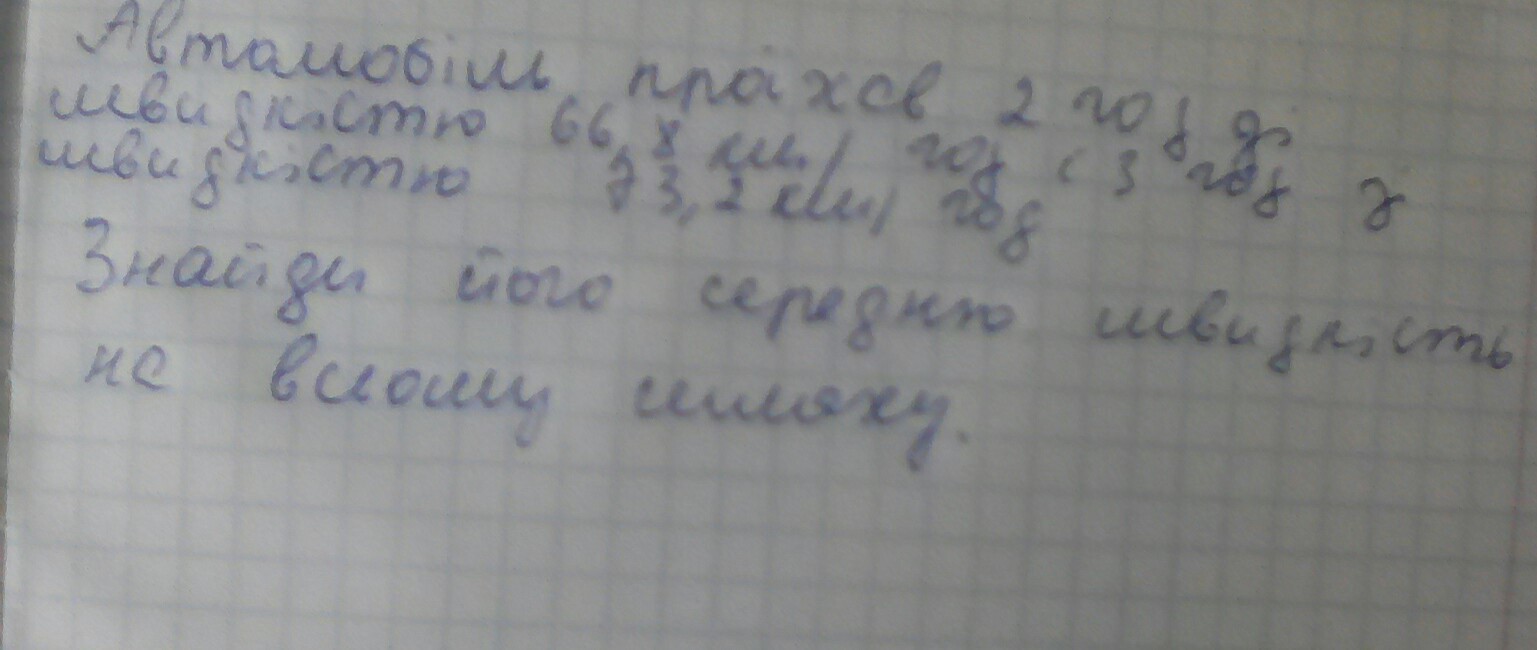 Автомобіль проїхав 2 год зі
швидкістю 66,8 км/год і 3 год з
швидкістю 73,2 км/год
Знайди його середню швидкість
на всьому шляху.